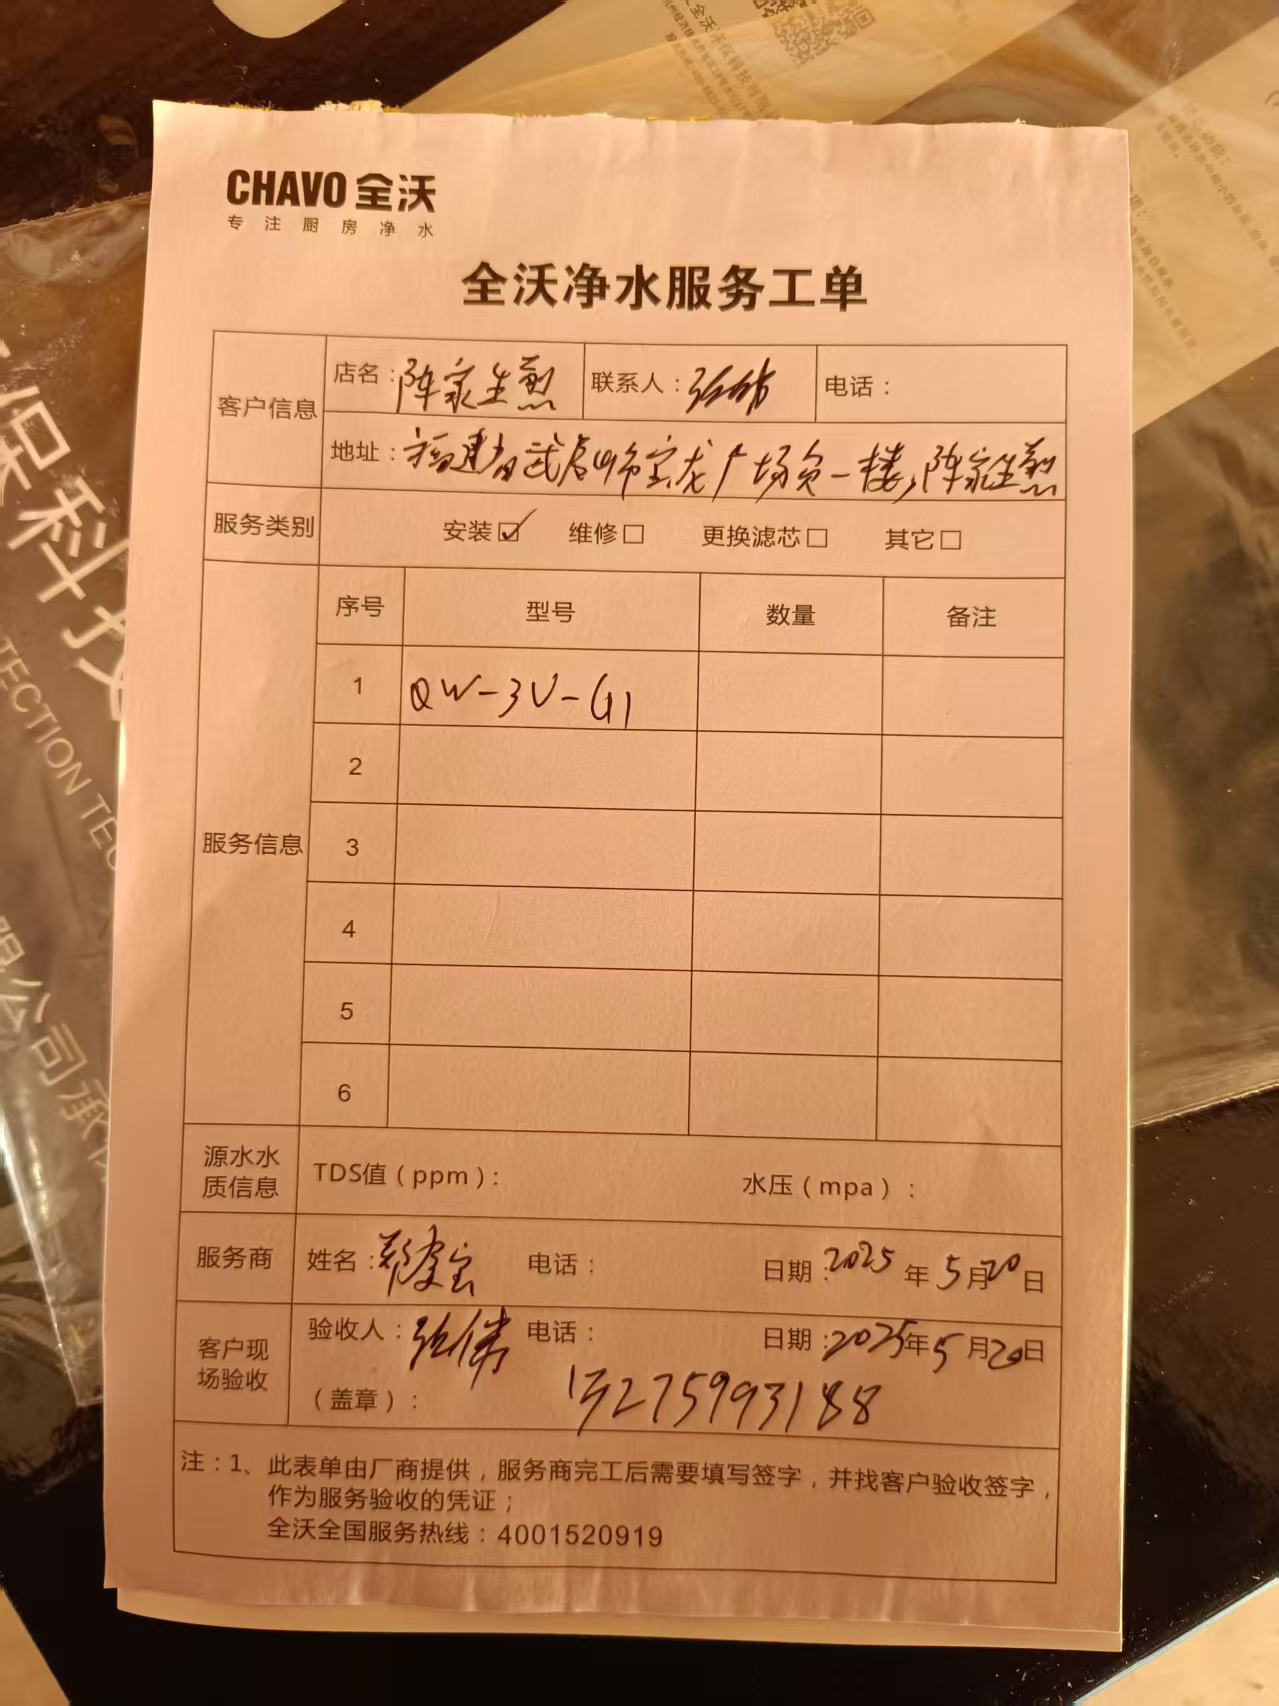 CHAVO 全沃
专注厨房净水
全沃净水服务工单
客户信息
店名：陈家生煎 联系人：张伟 电话：
地址：福建省武夷山市宝龙广场负一楼，陈家生煎
服务类别 安装☑ 维修□ 更换滤芯□ 其它□
服务信息
序号 型号 数量 备注
1 QW-3V-G1
2
3
4
5
6
源水水质信息 TDS值（ppm）： 水压（mpa）：
服务商 姓名：郑 宝 电话： 日期：2025年5月20日
客户现场验收 验收人：张伟 电话： 日期：2025年5月20日
（盖章）： 13275993188
注：1、此表单由厂商提供，服务商完工后需要填写签字，并找客户验收签字，
作为服务验收的凭证；
全沃全国服务热线：4001520919
保科技
TECTION TEC
限公司承